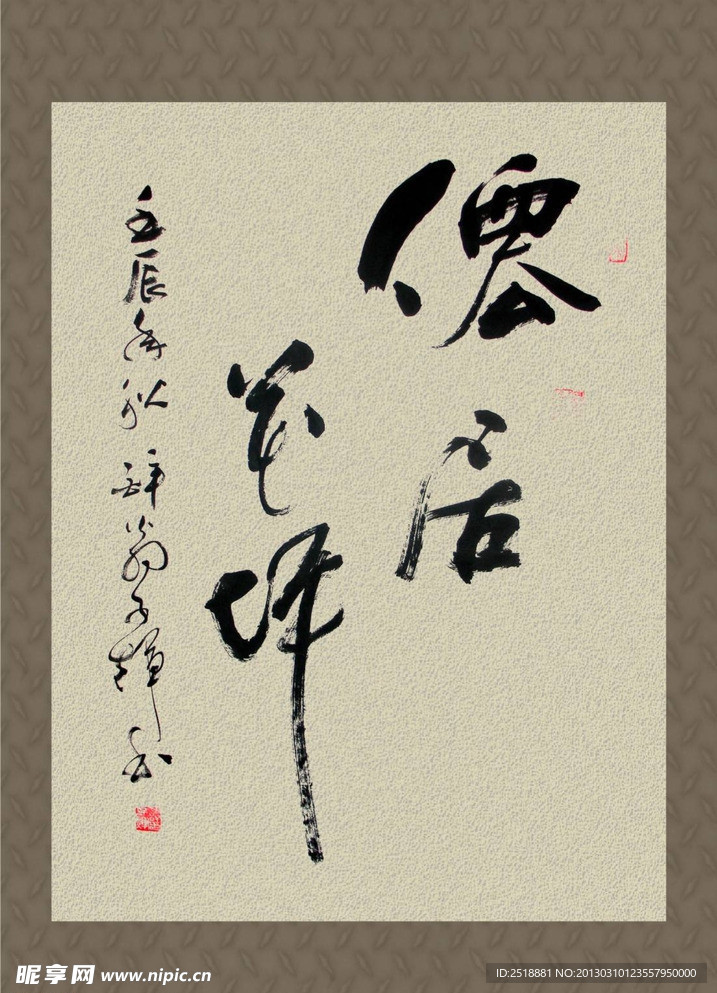 僊居
花坪
壬辰年秋 翁子輝
昵享网 www.nipic.cn
ID:2518881 NO:20130310123557950000